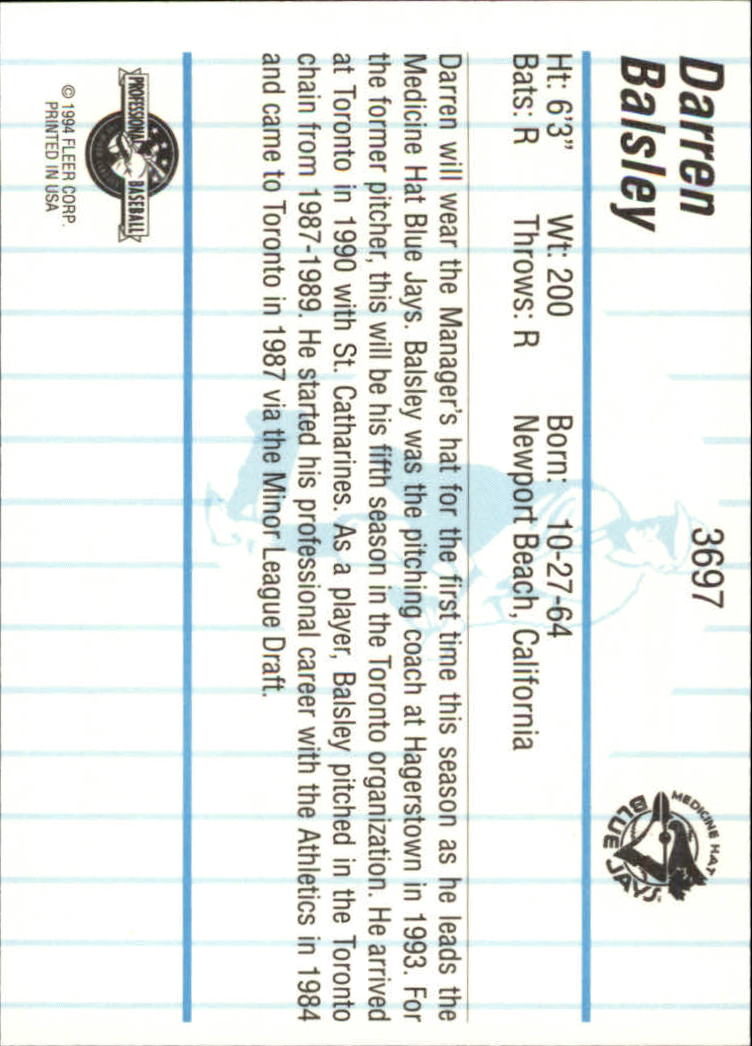 Darren
Balsley
3697
MEDICINE HAT
BLUE JAYS
Ht: 6'3" Wt: 200 Born: 10-27-64
Bats: R Throws: R Newport Beach, California
Darren will wear the Manager's hat for the first time this season as he leads the
Medicine Hat Blue Jays. Balsley was the pitching coach at Hagerstown in 1993. For
the former pitcher, this will be his fifth season in the Toronto organization. He arrived
at Toronto in 1990 with St. Catharines. As a player, Balsley pitched in the Toronto
chain from 1987-1989. He started his professional career with the Athletics in 1984
and came to Toronto in 1987 via the Minor League Draft.
PROFESSIONAL BASEBALL
© 1994 FLEER CORP.
PRINTED IN USA